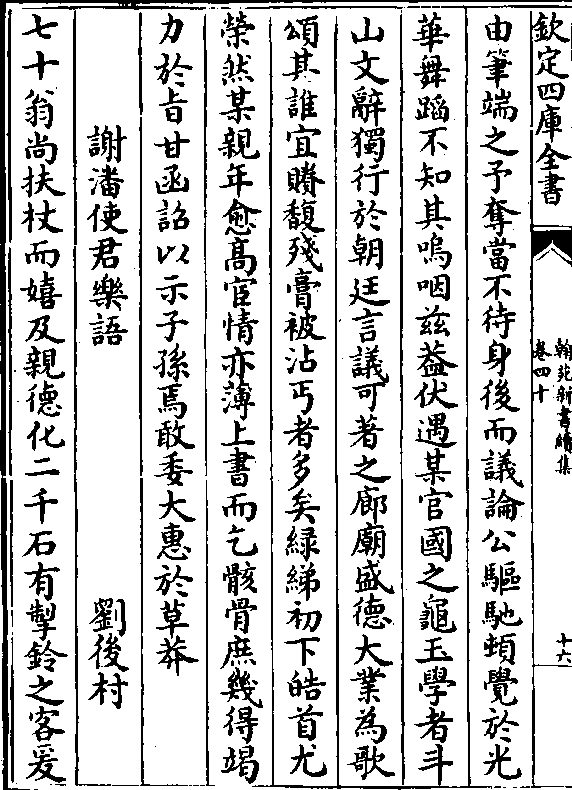 欽定四庫全書
翰苑新書續集
卷四十
十六
由筆端之予奪當不待身後而議論公驅馳頓覺於光
華舞蹈不知其嗚咽玆葢伏遇某官國之龜玉學者斗
山文辭獨行於朝廷言議可著之廊廟盛德大業為歌
頌其誰宜賸馥殘膏被沾丐者多矣緑綈初下皓首尤
榮然某親年愈髙宦情亦薄上書而乞骸骨庶幾得竭
力於旨甘函詔以示子孫焉敢委大惠於草莽
謝潘使君樂語　劉後村
七十翁尚扶杖而嬉及親德化二千石有掣鈴之客爰